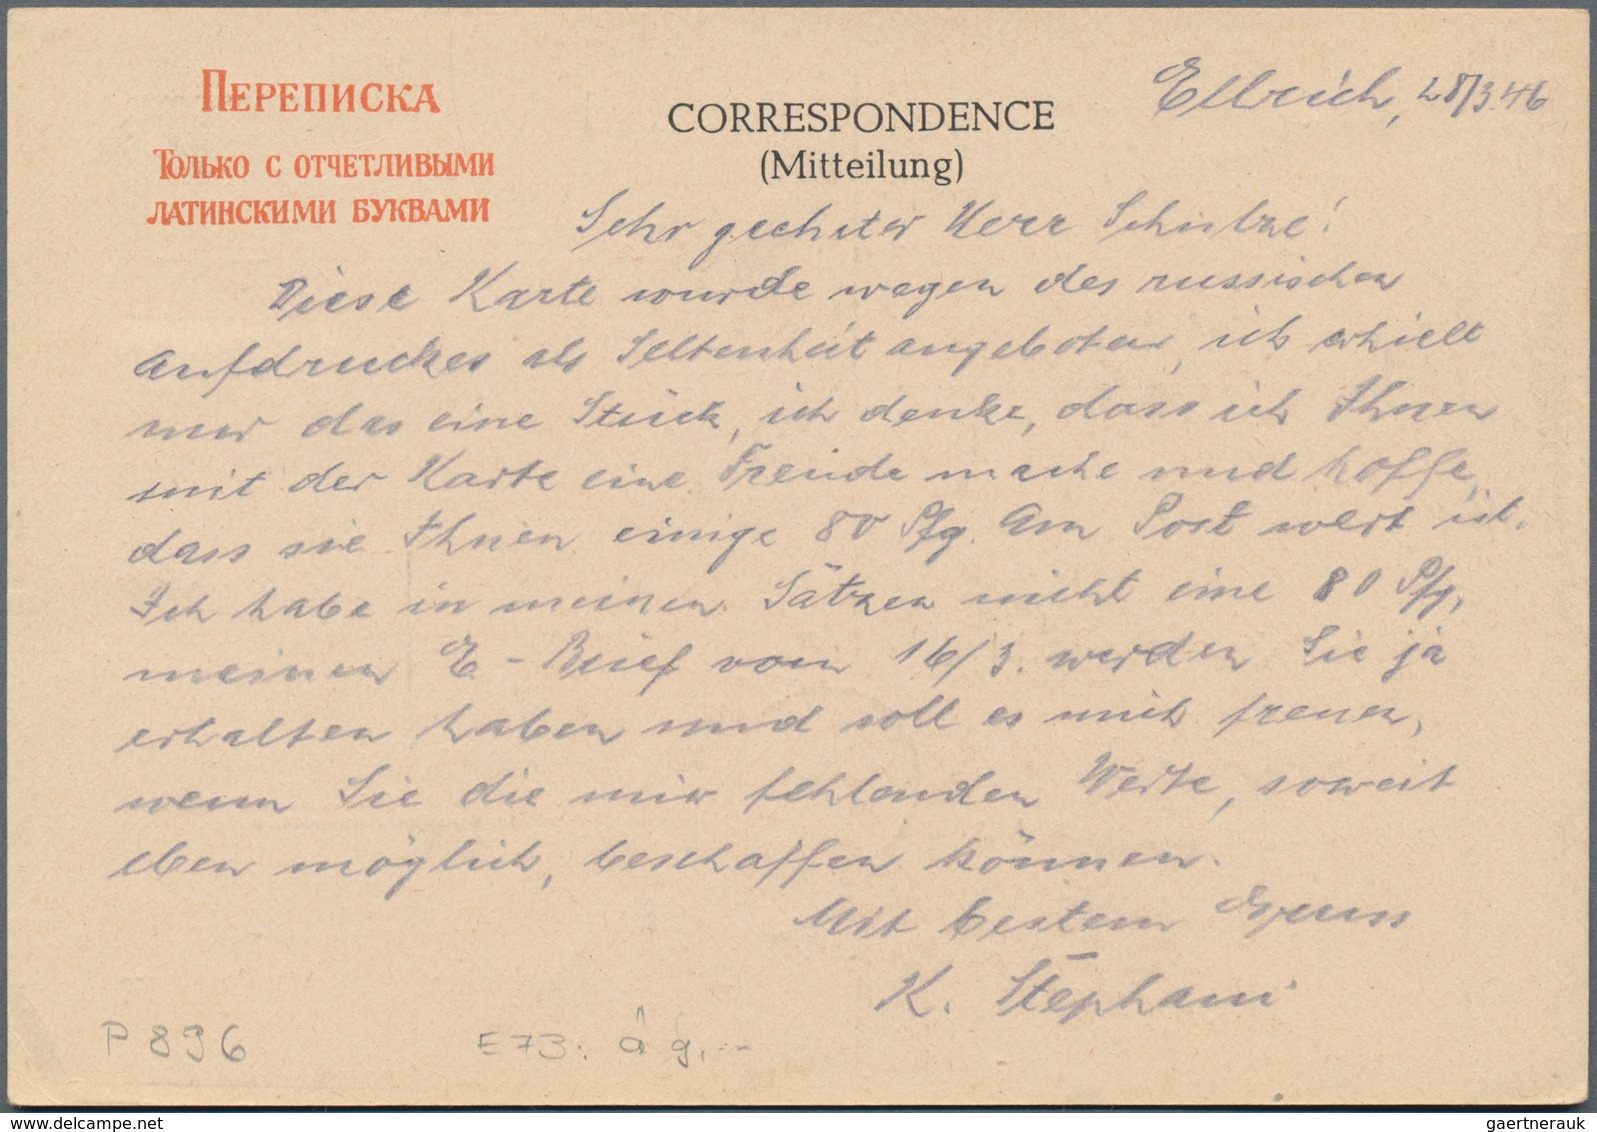 ПЕРЕПИСКА
ТОЛЬКО С ОТЧЕТЛИВЫМИ
ЛАТИНСКИМИ БУКВАМИ
CORRESPONDENCE
(Mitteilung)
Ellrich, 28/3.46
Sehr geehrter Herr Schulze!
Diese Karte wurde wegen des russischen
Aufdruckes als Seltenheit angeboten, ich erhielt
nur das eine Stück, ich denke, dass ich Ihnen
mit der Karte eine Freude mache und hoffe,
dass sie Ihnen einige 80 Pfg. Am Post wert ist.
Ich habe in meinen Sätzen nicht eine 80 Pfg,
meinen E-Brief vom 16/3. werden Sie ja
erhalten haben und soll es mich freuen,
wenn Sie die mir fehlenden Werte, soweit
eben möglich, beschaffen können.
Mit bestem Gruss
K. Stephani
P 896
E 73. à 9,--
gaertnerauk